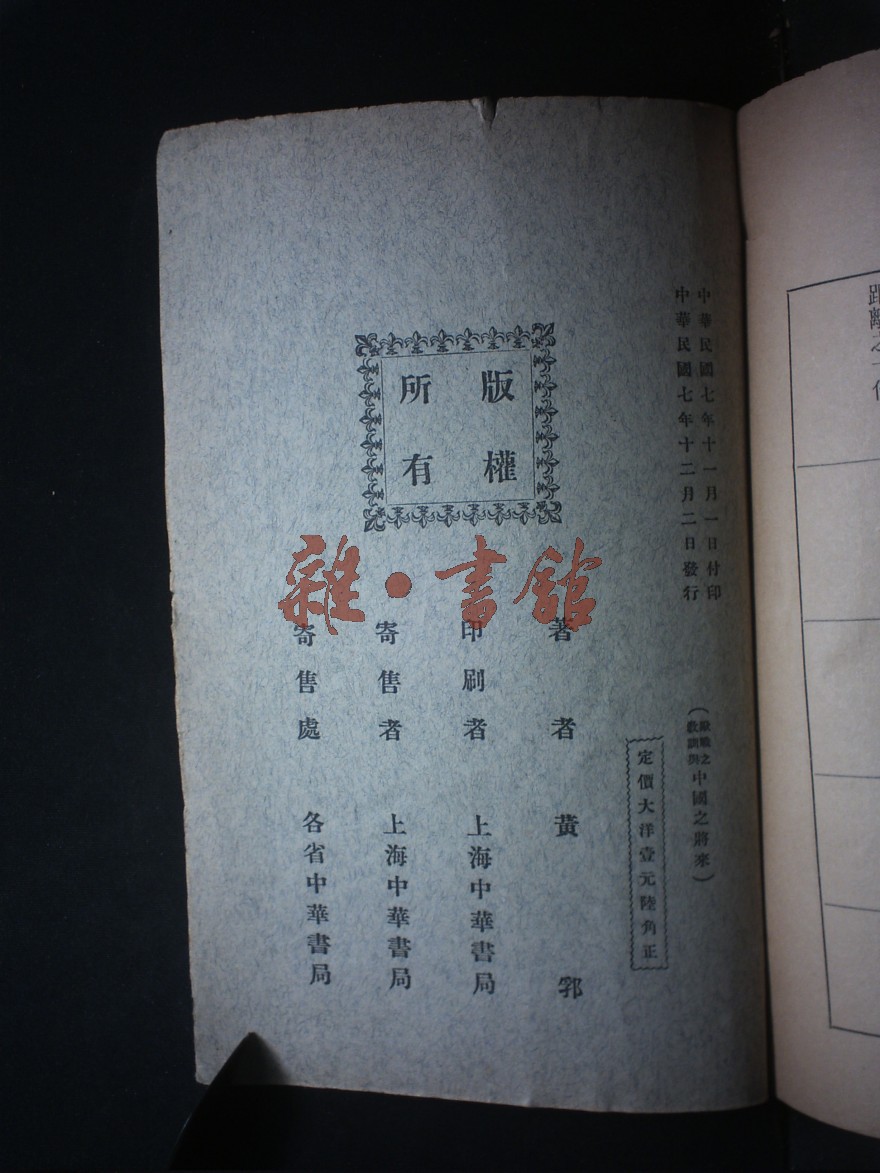 中華民國七年十一月一日付印
中華民國七年十二月二日發行
（歐戰之教訓與中國之將來）
定價大洋壹元陸角正
版權
所有
著者 黃郛
印刷者 上海中華書局
寄售者 上海中華書局
寄售處 各省中華書局
雜·書館
距離之